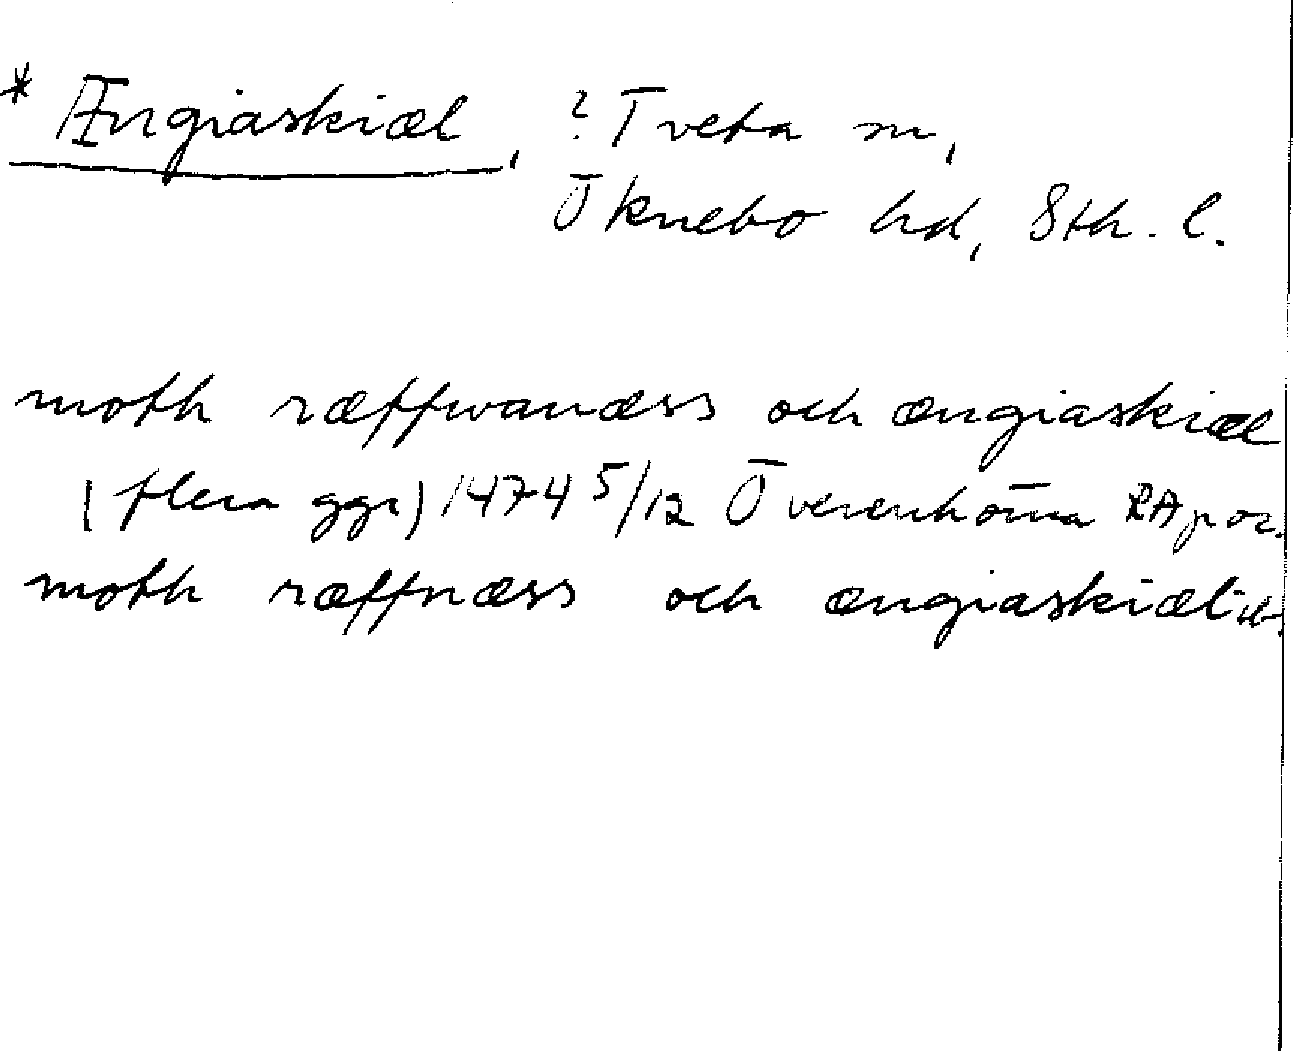 * Ængiaskiæl, ? Tveta sn,
Öknebo hd, Sth. l.
moth ræffwanæss och ængiaskiæl
(flera ggr) 1474 5/12 Överenhörna RAp or.
moth ræffnæss och ængiaskiæl ib.